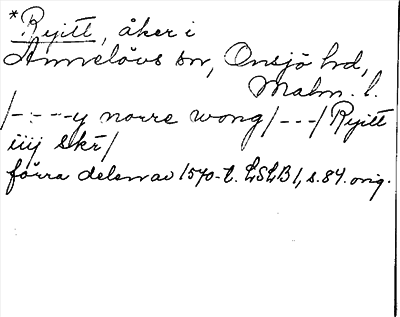 *Ryitt, åker i
Annelövs sn, Onsjö hd,
Malm. l.
/-:--y norre wong/---/Ryitt
iiij skr/
förra delen av 1570-t. LSLB 1, s. 84. orig.